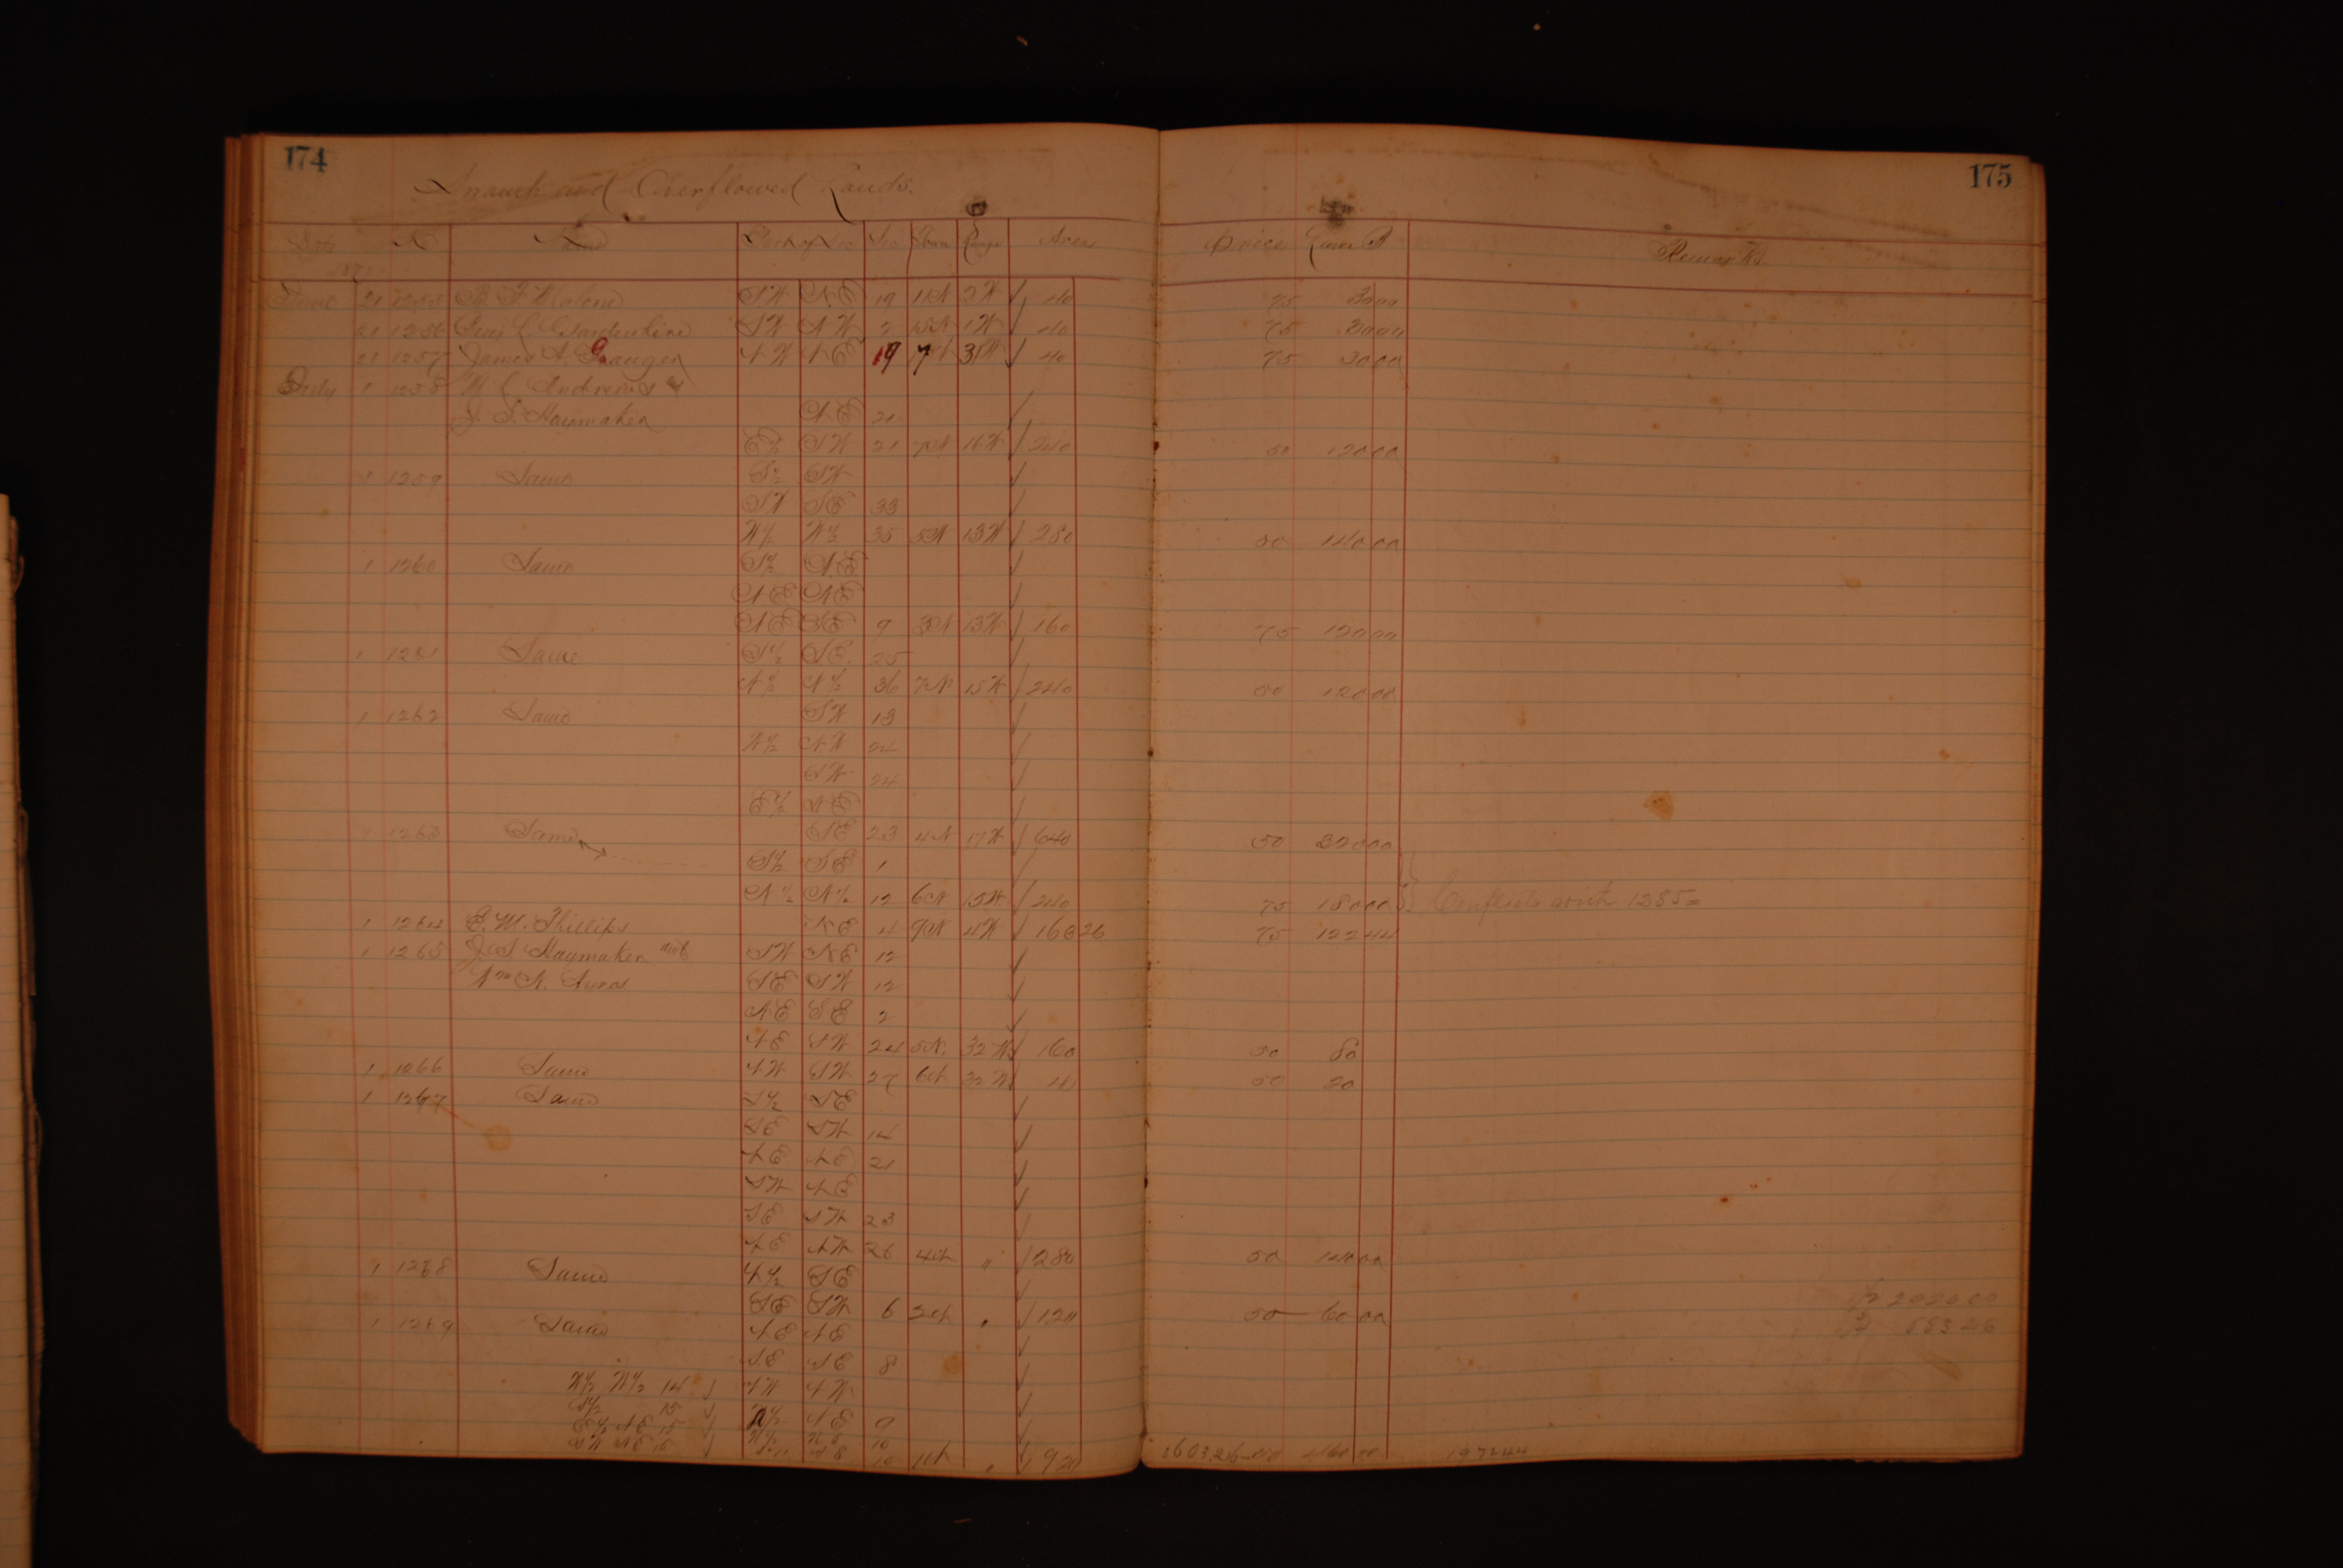 174
175
Swamp and Overflowed Lands.
Date No Name Part of Sec Sec Town Range Area Price Amount Remarks
187
June 21 1255 Malone SW NE 19 11N 2W ✓ 40 75 3000
21 1256 Gardenhire SW NW 2 15N 1W ✓ 40 75 3000
21 1257 James A. Granger NW NE 19 7N 31W ✓ 40 75 3000
July 1 1258 W C Andrews &
J. S. Haymaker NE 21 ✓
E½ SW 21 7N 16W ✓ 240 50 12000
1 1259 Same S½ SW ✓
SW SE 33 ✓
W½ W½ 35 5N 13W ✓ 280 50 14000
1 1260 Same S½ NE ✓
NE NE ✓
NE SE 9 3N 13W ✓ 160 75 12000
1 1261 Same S½ SE. 25 ✓
N½ N½ 36 7N 15W ✓ 240 50 12000
1 1262 Same SW 13 ✓
W½ NW 24 ✓
SW 24 ✓
E½ NE ✓
1 1263 Same SE 23 4N 17W ✓ 640 50 32000
S½ SE 1 ✓
N½ N½ 12 6N 15W ✓ 240 75 18000 Conflicts with 1285
1 1264 E. M. Phillips NE 4 9N 4W ✓ 163 26 75 12244
1 1265 J. S. Haymaker and SW NE 12 ✓
Wm N. SE SW 12 ✓
NE SE 2 ✓
NE SW 24 5N. 32W ✓ 160 50 80
1 1266 Same NW SW 27 6N 32W ✓ 4 50 20
1 1267 Same S½ SE ✓
SE SW 14 ✓
NE NE 21 ✓
SW NE ✓
SE SW 23 ✓
NE NW 26 4N " ✓ 280 50 14000
1 1268 Same N½ SE ✓
SE SW 6 3N " ✓ 120 50 6000
1 1269 Same NE NE ✓
SE SE 8 ✓
W½ W½ 14 ✓ NW NW ✓
S½ 15 ✓ N½ NE 9 ✓
E½ NE 15 ✓ 10 ✓
SW NE 15 ✓ SE 10 11N " ✓ 920 3603.26 460 00 197244
½ 2020 00